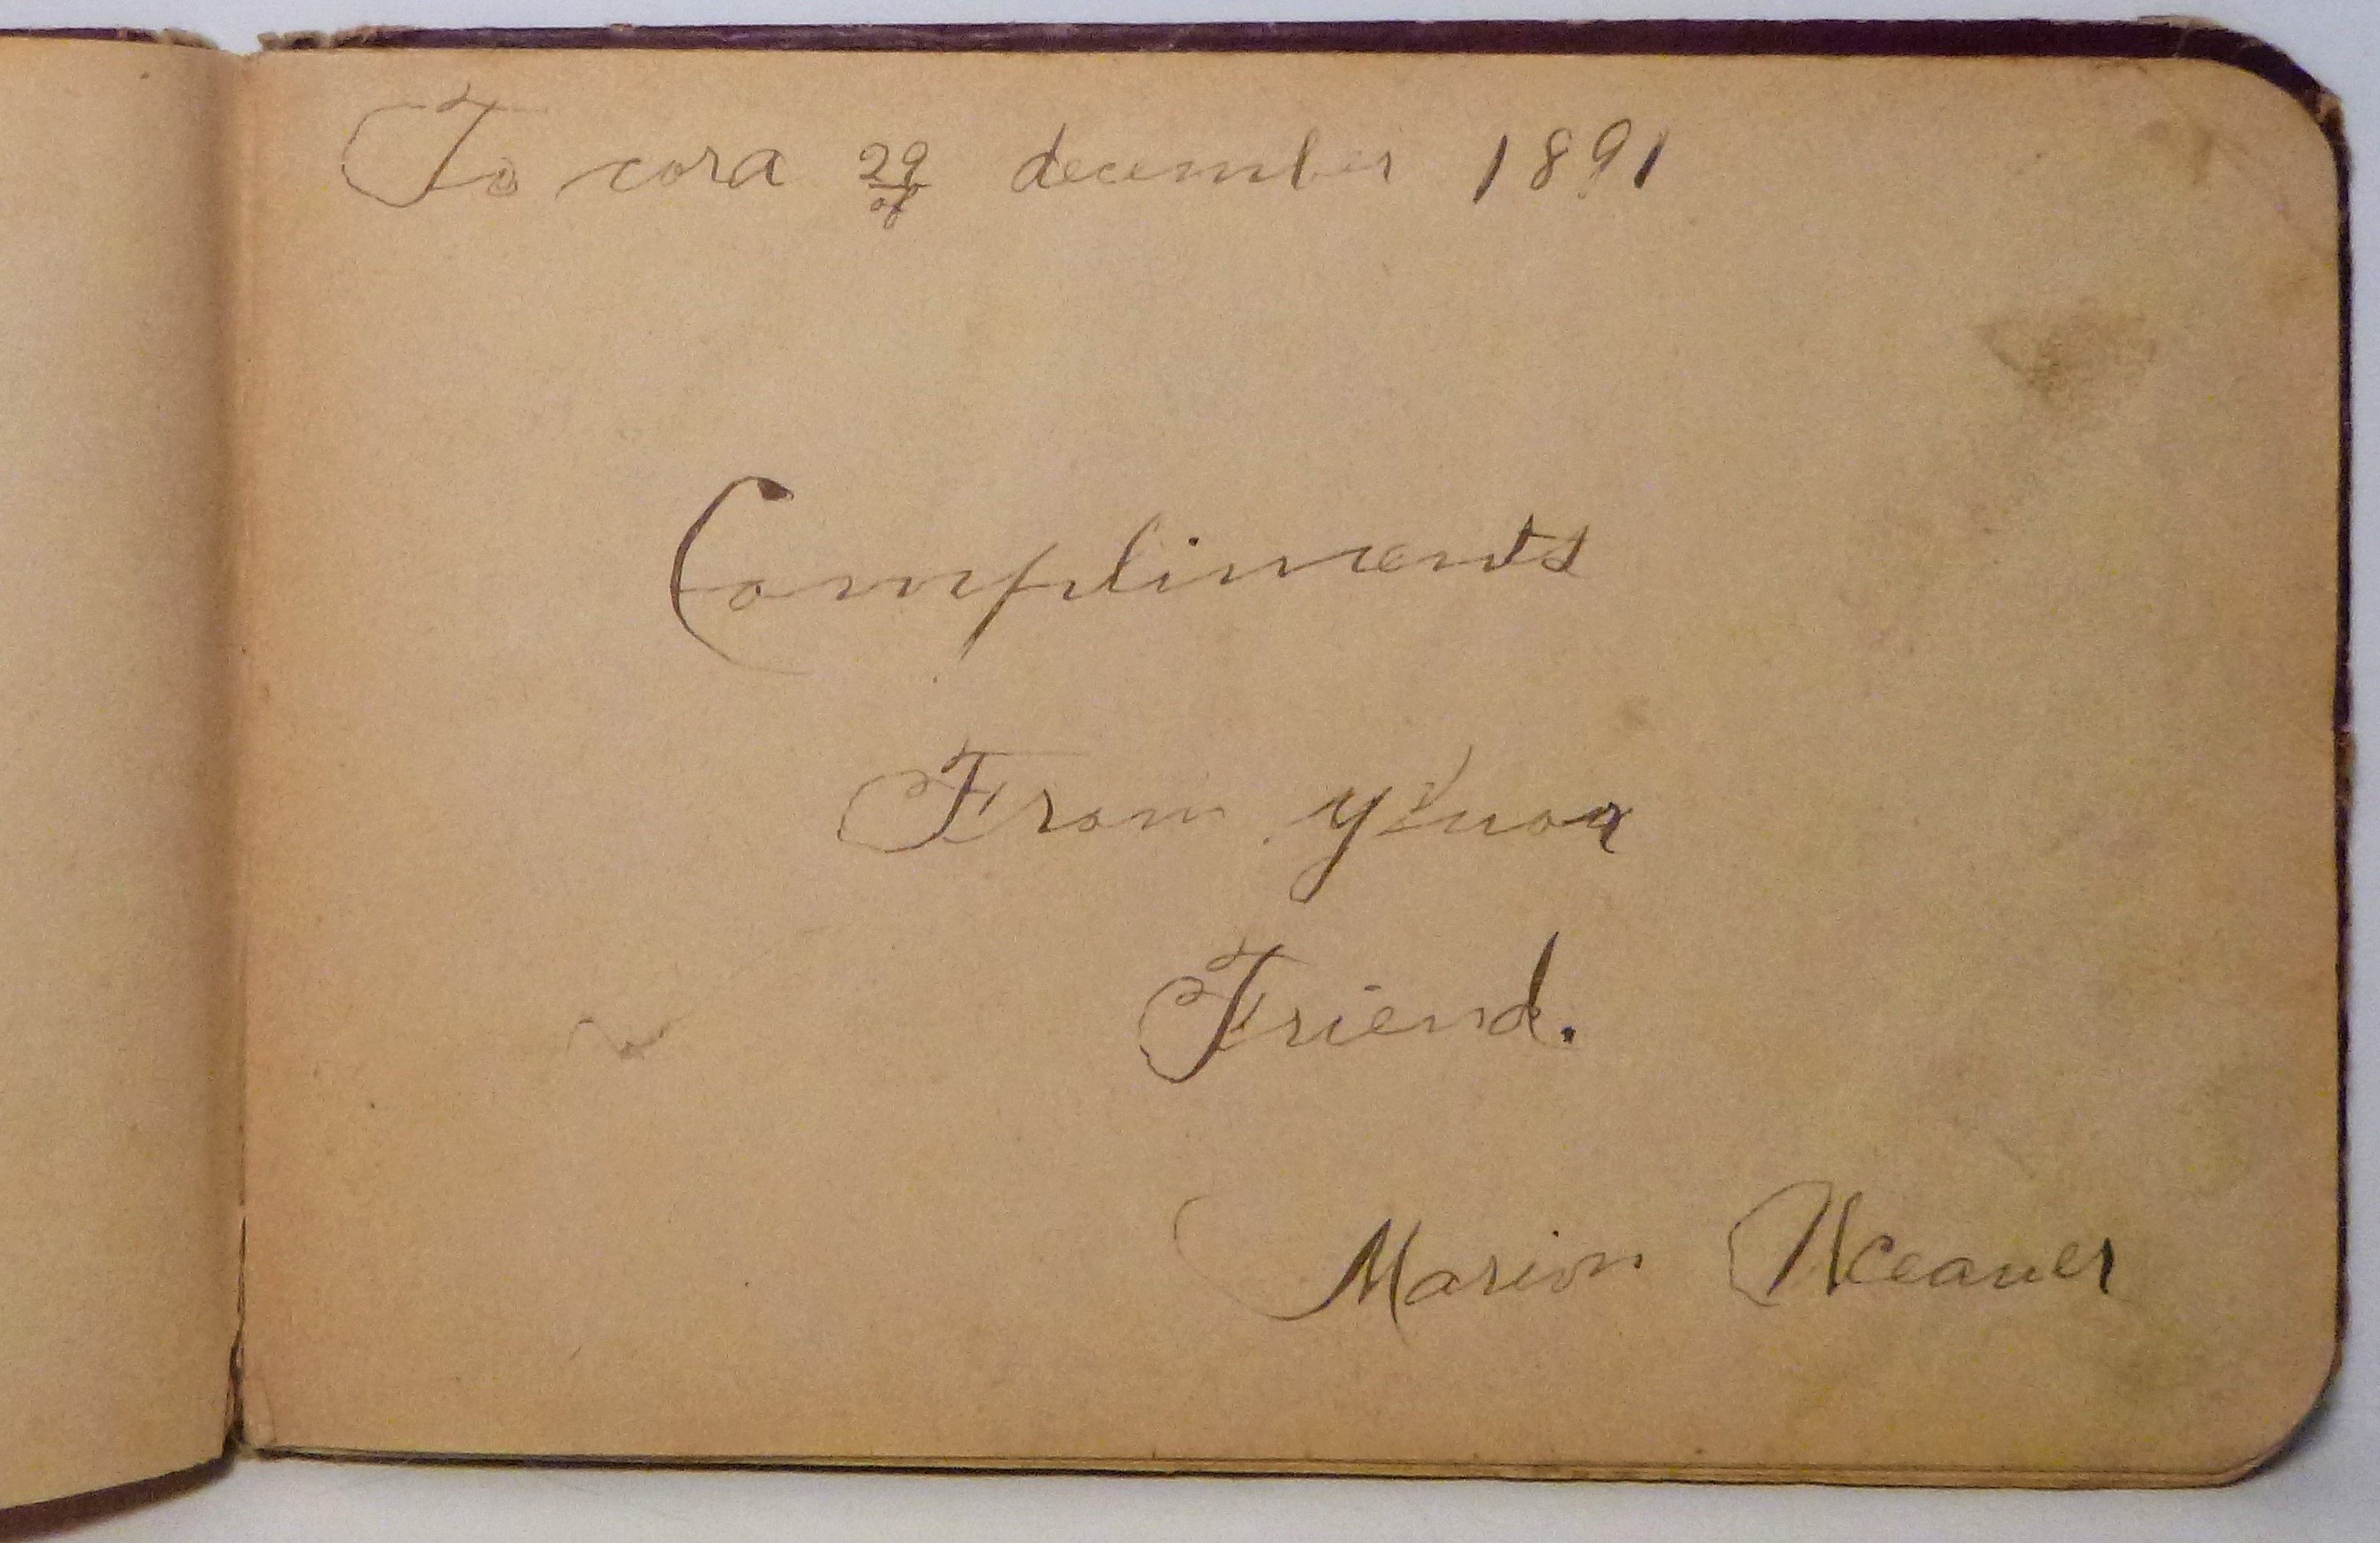 To cora 29 of december 1891
Compliments
From
Friend.
Marion Weaver